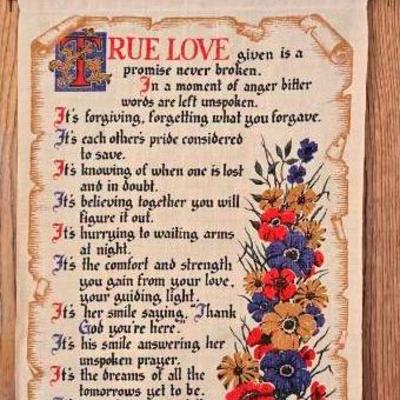 TRUE LOVE given is a
promise never broken.
In a moment of anger bitter
words are left unspoken.
It's forgiving, forgetting what you forgave.
It's each other's pride considered
to save.
It's knowing of when one is lost
and in doubt.
It's believing together you will
figure it out.
It's hurrying to waiting arms
at night.
It's the comfort and strength
you gain from your love,
your guiding light.
It's her smile saying, "Thank
God you're here."
It's his smile answering her
unspoken prayer.
It's the dreams of all the
tomorrows yet to be.